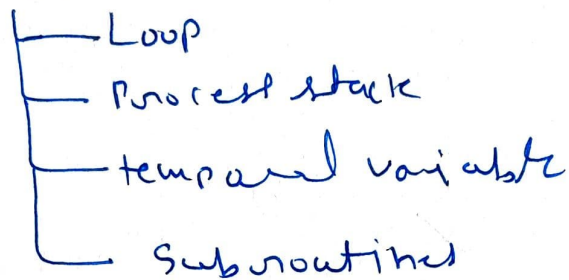 Loop
Process stack
temporal variable
Subroutines